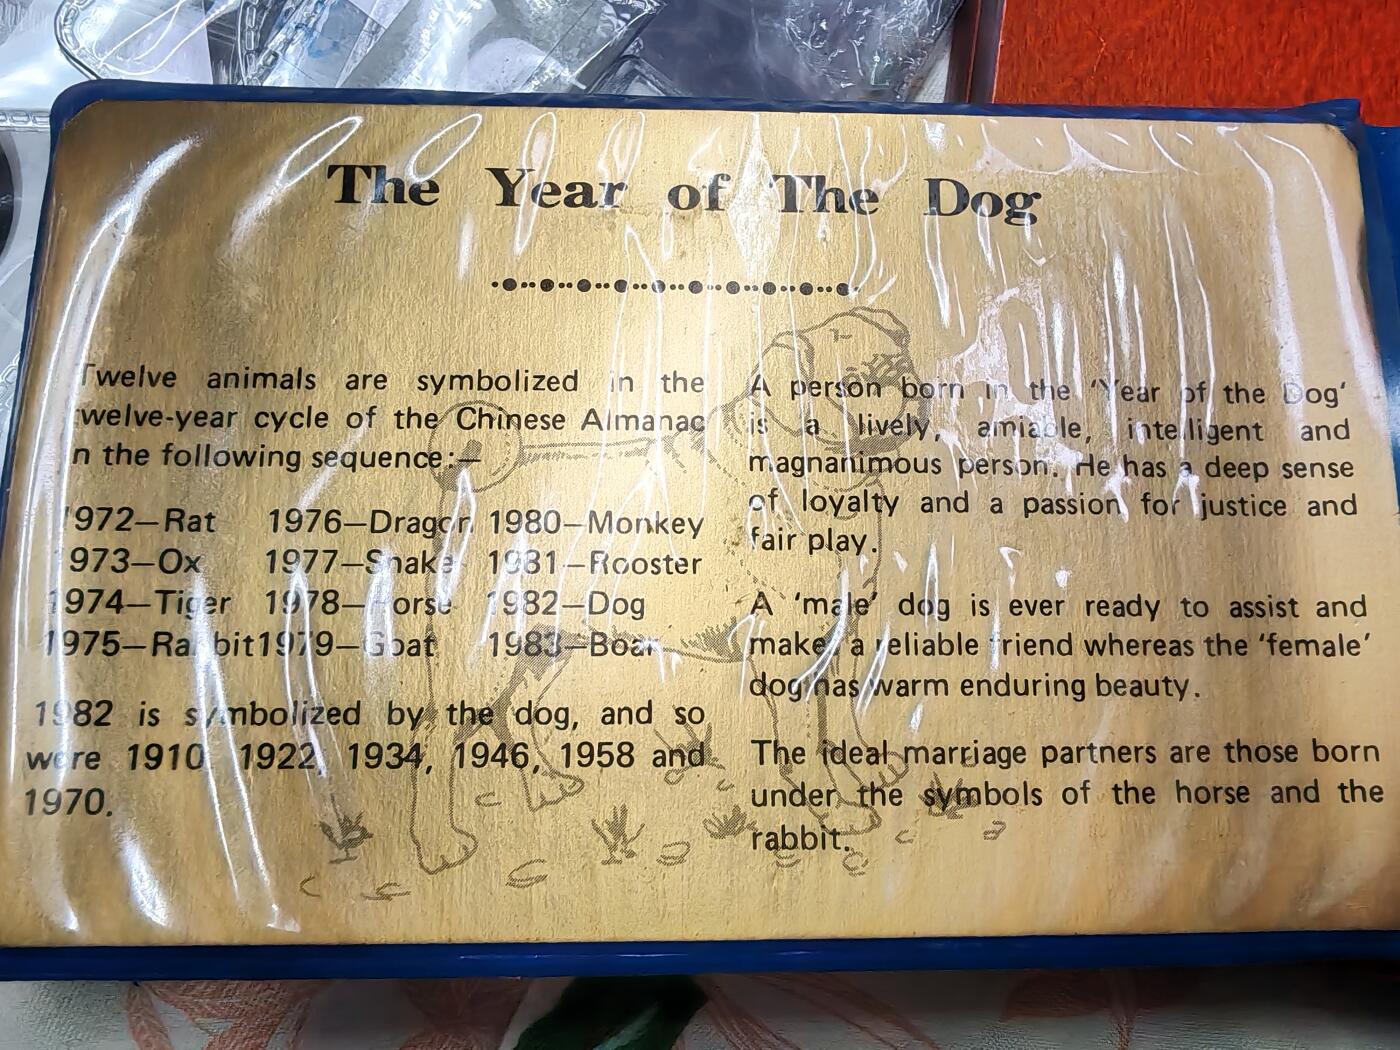 The Year of The Dog
Twelve animals are symbolized in the
twelve-year cycle of the Chinese Almanac
in the following sequence:—
1972—Rat 1976—Dragon 1980—Monkey
1973—Ox 1977—Snake 1981—Rooster
1974—Tiger 1978—Horse 1982—Dog
1975—Rabbit 1979—Goat 1983—Boar
1982 is symbolized by the dog, and so
were 1910, 1922, 1934, 1946, 1958 and
1970.
A person born in the 'Year of the Dog'
is a lively, amiable, intelligent and
magnanimous person. He has a deep sense
of loyalty and a passion for justice and
fair play.
A 'male' dog is ever ready to assist and
make a reliable friend whereas the 'female'
dog has warm enduring beauty.
The ideal marriage partners are those born
under the symbols of the horse and the
rabbit.